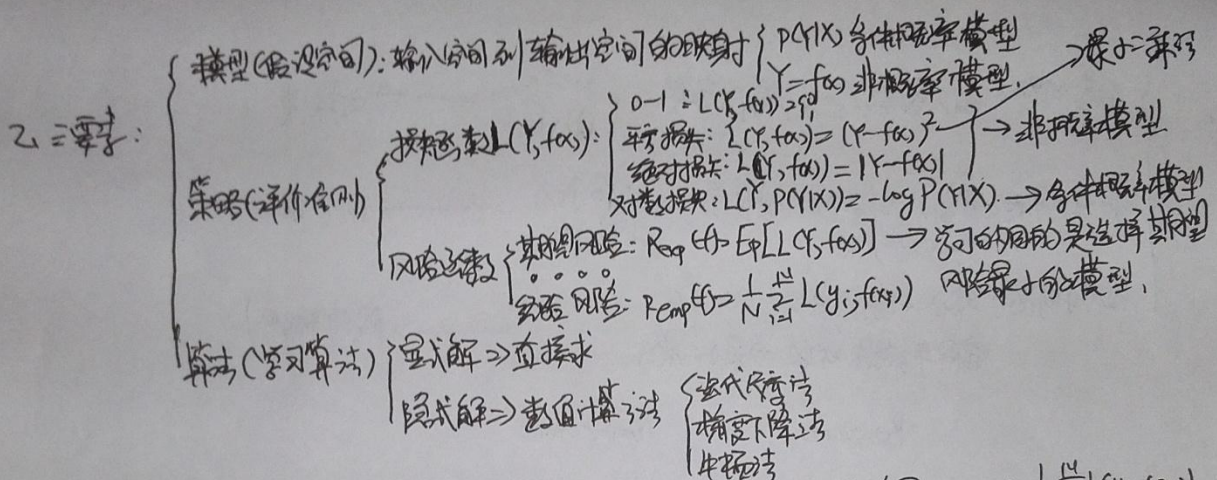 2、三要素:
模型(假设空间):输入空间到输出空间的映射
P(Y|X) 条件概率模型
Y=f(x) 非概率模型.
策略(评价准则)
损失函数L(Y,f(x)):
0-1:L(Y,f(x))=
平方损失:L(Y,f(x))=(Y-f(x))² →最小二乘法
绝对损失:L(Y,f(x))=|Y-f(x)|
→非概率模型
对数损失:L(Y,P(Y|X))=-logP(Y|X).→条件概率模型
风险函数
期望风险:Rexp(f)=Ep[L(Y,f(x))]→学习的目的是选择期望
风险最小的模型.
经验风险:Remp(f)=1/N Σ_{i=1}^{N} L(yi,f(xi))
算法(学习算法)
显式解⇒直接求
隐式解⇒数值计算方法
迭代尺度法
梯度下降法
牛顿法